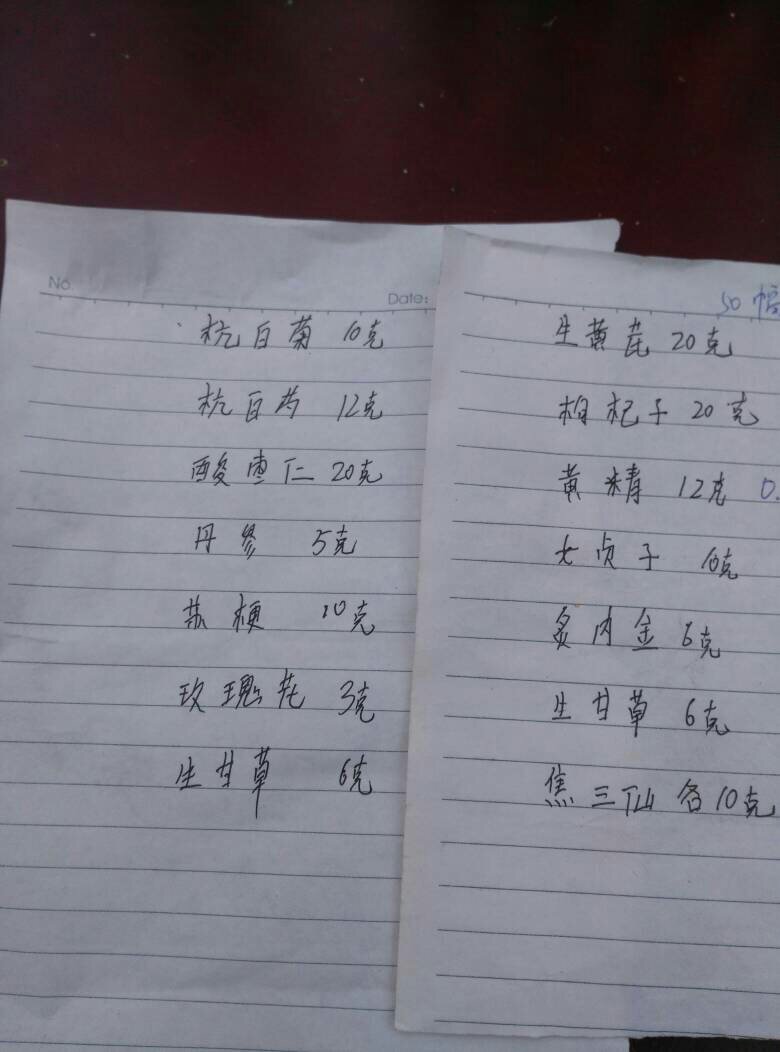 No.
Date:
杭白菊 10克
杭白芍 12克
酸枣仁 20克
丹参 5克
苏梗 10克
玫瑰花 3克
生甘草 6克
50
生黄芪 20克
枸杞子 20克
黄精 12克 0.
女贞子 10克
炙内金 6克
生甘草 6克
焦三仙各10克